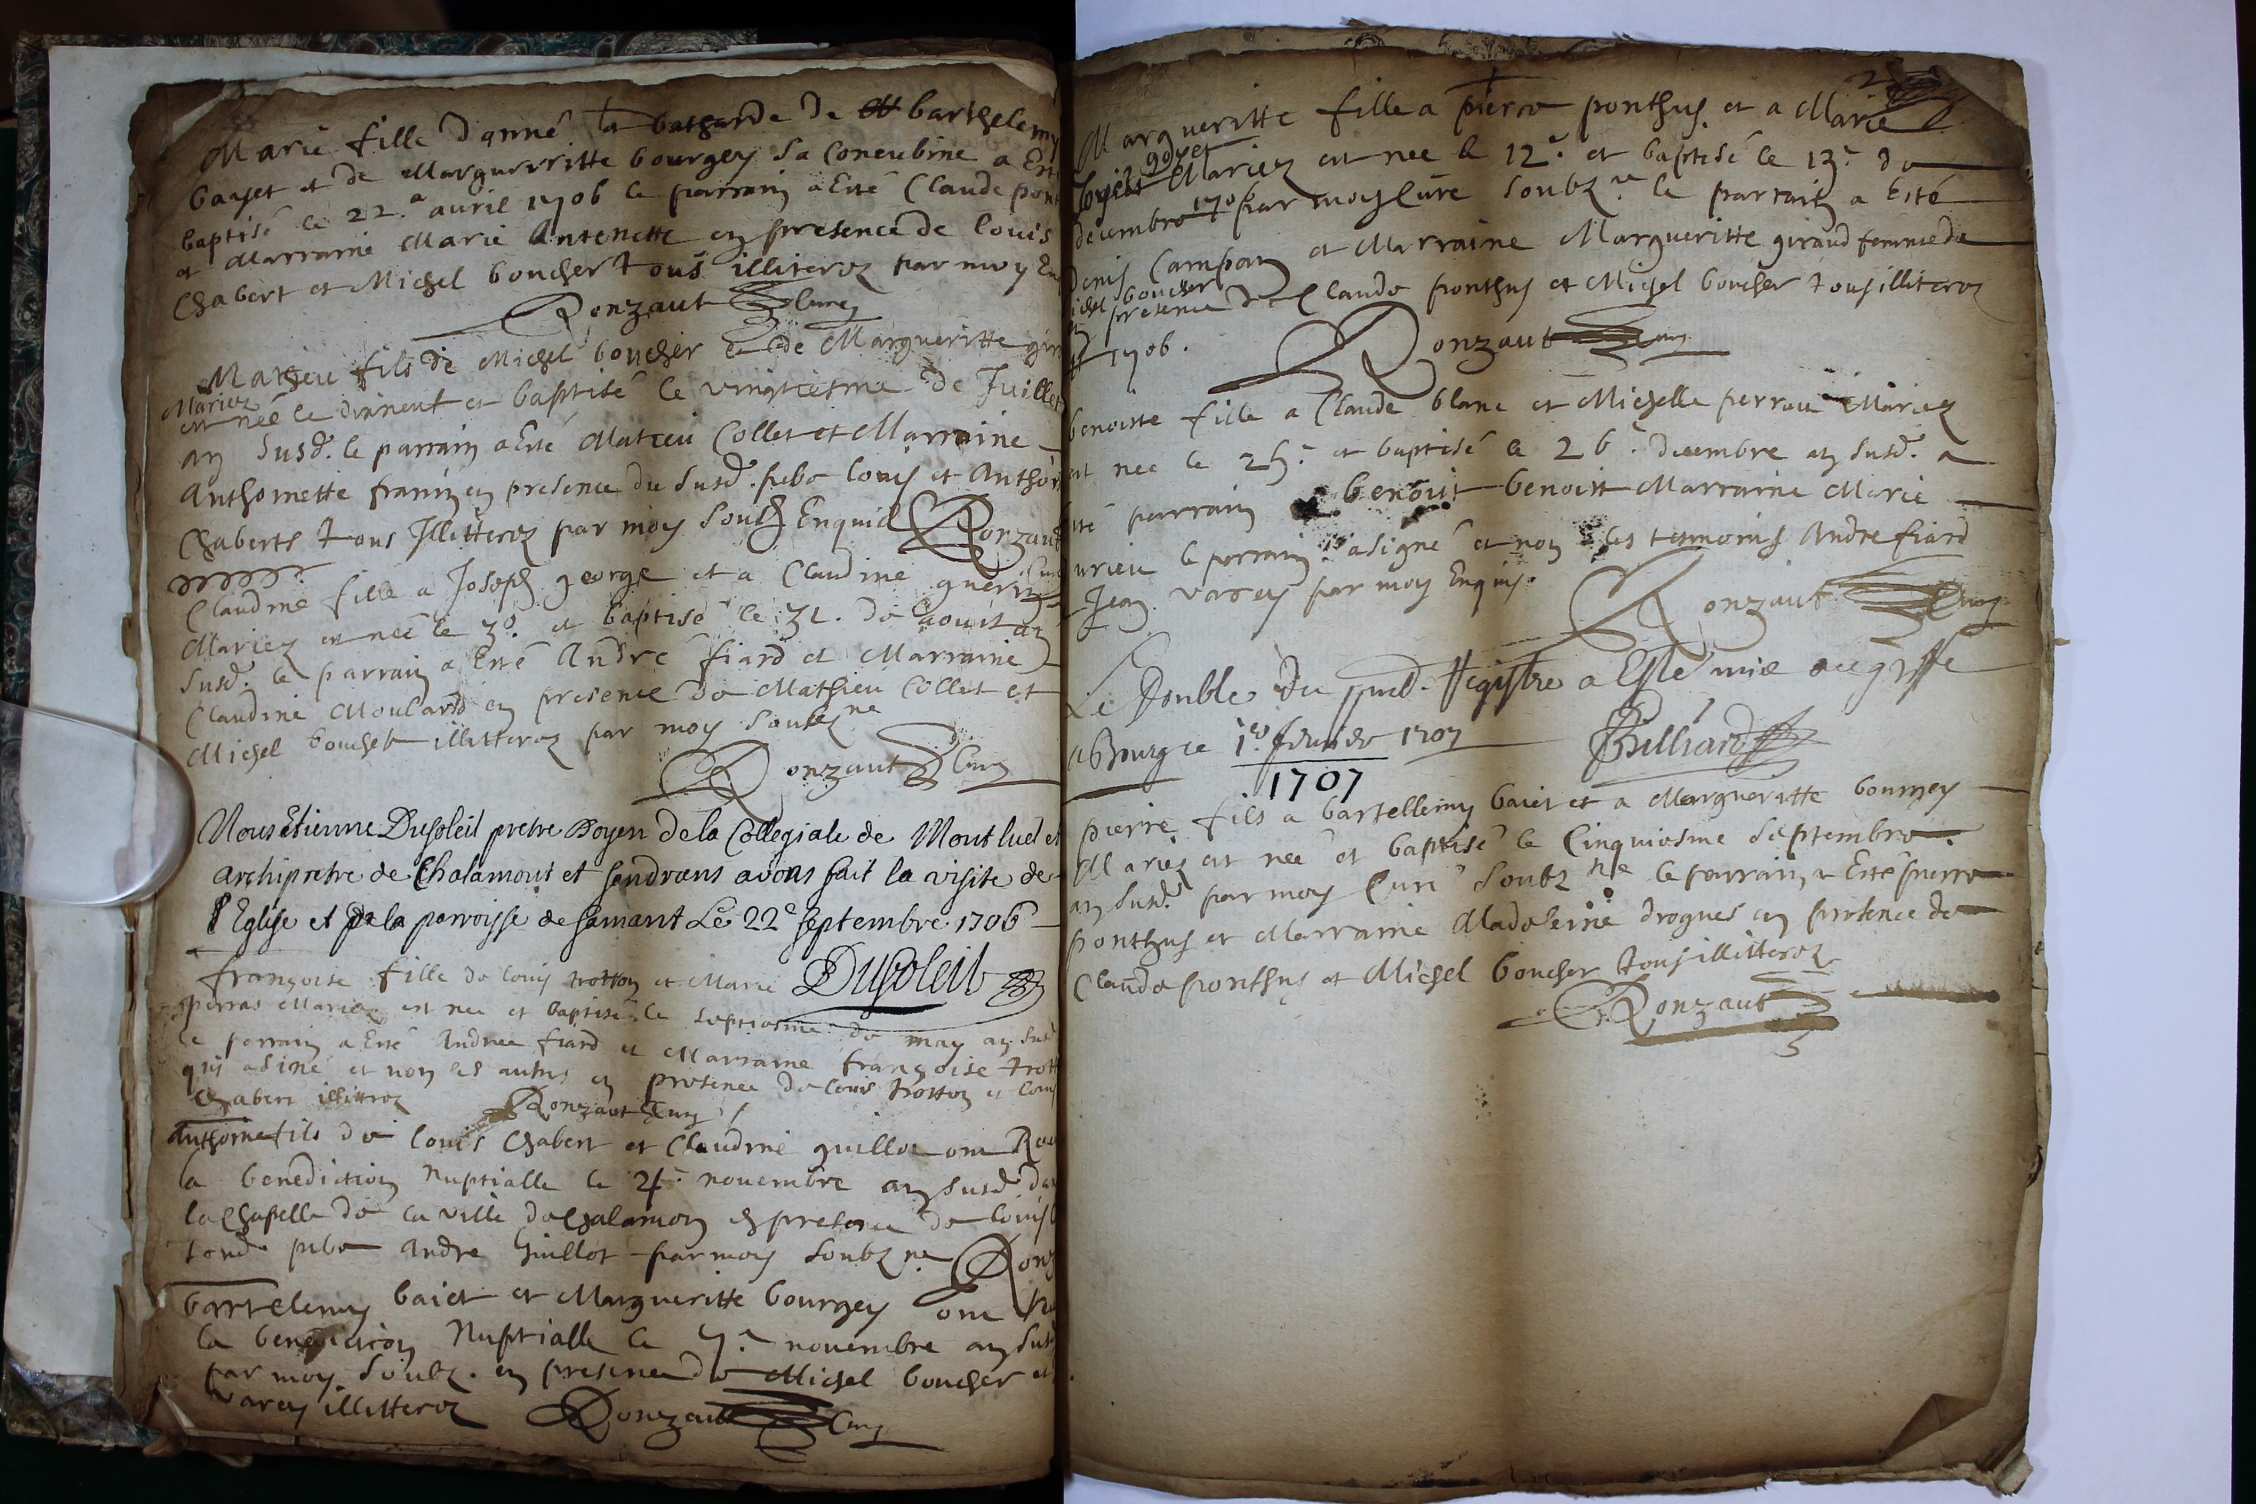 Marie fille donné la batharde de barthelemy
bayet et de Marguerritte bourgey sa concubine a Est
baptisé le 22.e avril 1706 le parrain a Esté Claude pont
et Marraine Marie Antenette en presence de louis
Chabert et Michel boucher tous illiterez par moy
Ronzaut Curé
Mateu fils de Michel boucher et de Margueritte gir
Mariez
est neé le dixneuf et baptisé le vingtiesme de Juillet
an susd. le parrain a Esté Matieu Collet et Marraine
anthoinette franc en presence du susd. pebo louis et Anthoi
Chaberts tous Jllitterez par moy soub Enquis Ronzaut
Curé
Claudine fille a Joseph george et a Claudine guerin
Mariez est neé le 30. et baptisé le 31. de l'aoust an
susd. le parrain a Esté André fiard et Marraine
Claudine Moulard en presence de Mathieu Collet et
Michel boucher illitterez par moy soubz.ne
Ronzaut Curé
Nous Etienne Dusoleil pretre Doyen de la Collegiale de Montluel et
archipretre de Chalamont et sandrans avons fait la visite de
l'Eglise et de la parroisse de samant Le 22e septembre 1706
Dusoleil
françoise fille de louis trotton et Marie
perras Mariez est neé et baptisé le septiesme de may an susd
le parrain a Esté Andrée fiard et Marraine françoise trott
qui a siné et non les autres en presence de louis trotton et louis
Chabert illitterez Ronzaut Curé
Anthoine fils de louis Chabert et Claudine guillot ont Re
la benediction Nuptialle le 24.e novembre an susd. da
la Chapelle de la ville de Chalamon en presence de louis
pebo andre Guillot par moy soubz.ne Ronz
bartelemy baiet et Margueritte bourgey ont Re
la benediction Nuptialle le 7.e novembre an sus
par moy soubz. en presence de Michel boucher et
varey illitterez Ronzaut Curé
Margueritte fille a pierre ponthus et a Marie
goyet
Mariez est neé le 12.e et baptisé le 13.e de
decembre 1706 par moy Curé soubz.ne le parrain a Esté
Denis Campan et Marraine Margueritte giraud femme de
ichel boucher
en presence de Claude ponthus et Michel boucher tous illiterez
1706.
Ronzaut Curé
benoiste fille a Claude blanc et Michelle perraut Mariez
est neé le 25.e et baptisé le 26. decembre an susd. a
sté parrain benoit benoist Marraine Marie
urieu le parrain a signé et non les tesmoins Andre fiard
Jean varey par moy Enquis.
Ronzaut Curé
Le Double du pnt. Registre a Esté mis au greffe
a Bourg ce 1er fevrier 1707
Billiard
1707
pierre fils a bartellemy baiet et a Margueritte bourgey
Mariez est neé et baptisé le Cinquiesme septembre
an susd. par moy Curé soubz ne le parrain a Esté pierre
ponthus et Marraine Madeleine drogues en presence de
Claude ponthus et Michel boucher tous illitterez
Ronzaut